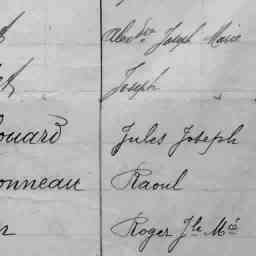 Alexdre Joseph Marie
Joseph
ouard Jules Joseph
onneau Raoul
Roger Jh Mie